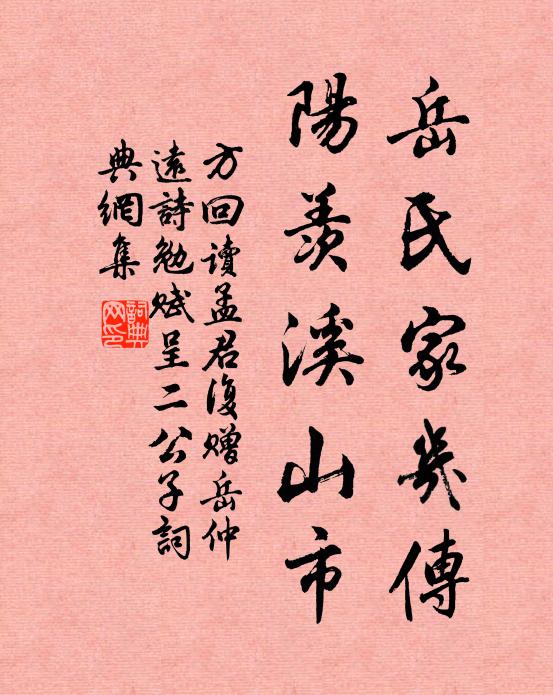 岳氏家幾傳
陽羨溪山市
方回讀孟君復贈岳仲
遠詩勉賦呈二公子詞
典網集
詞典网印